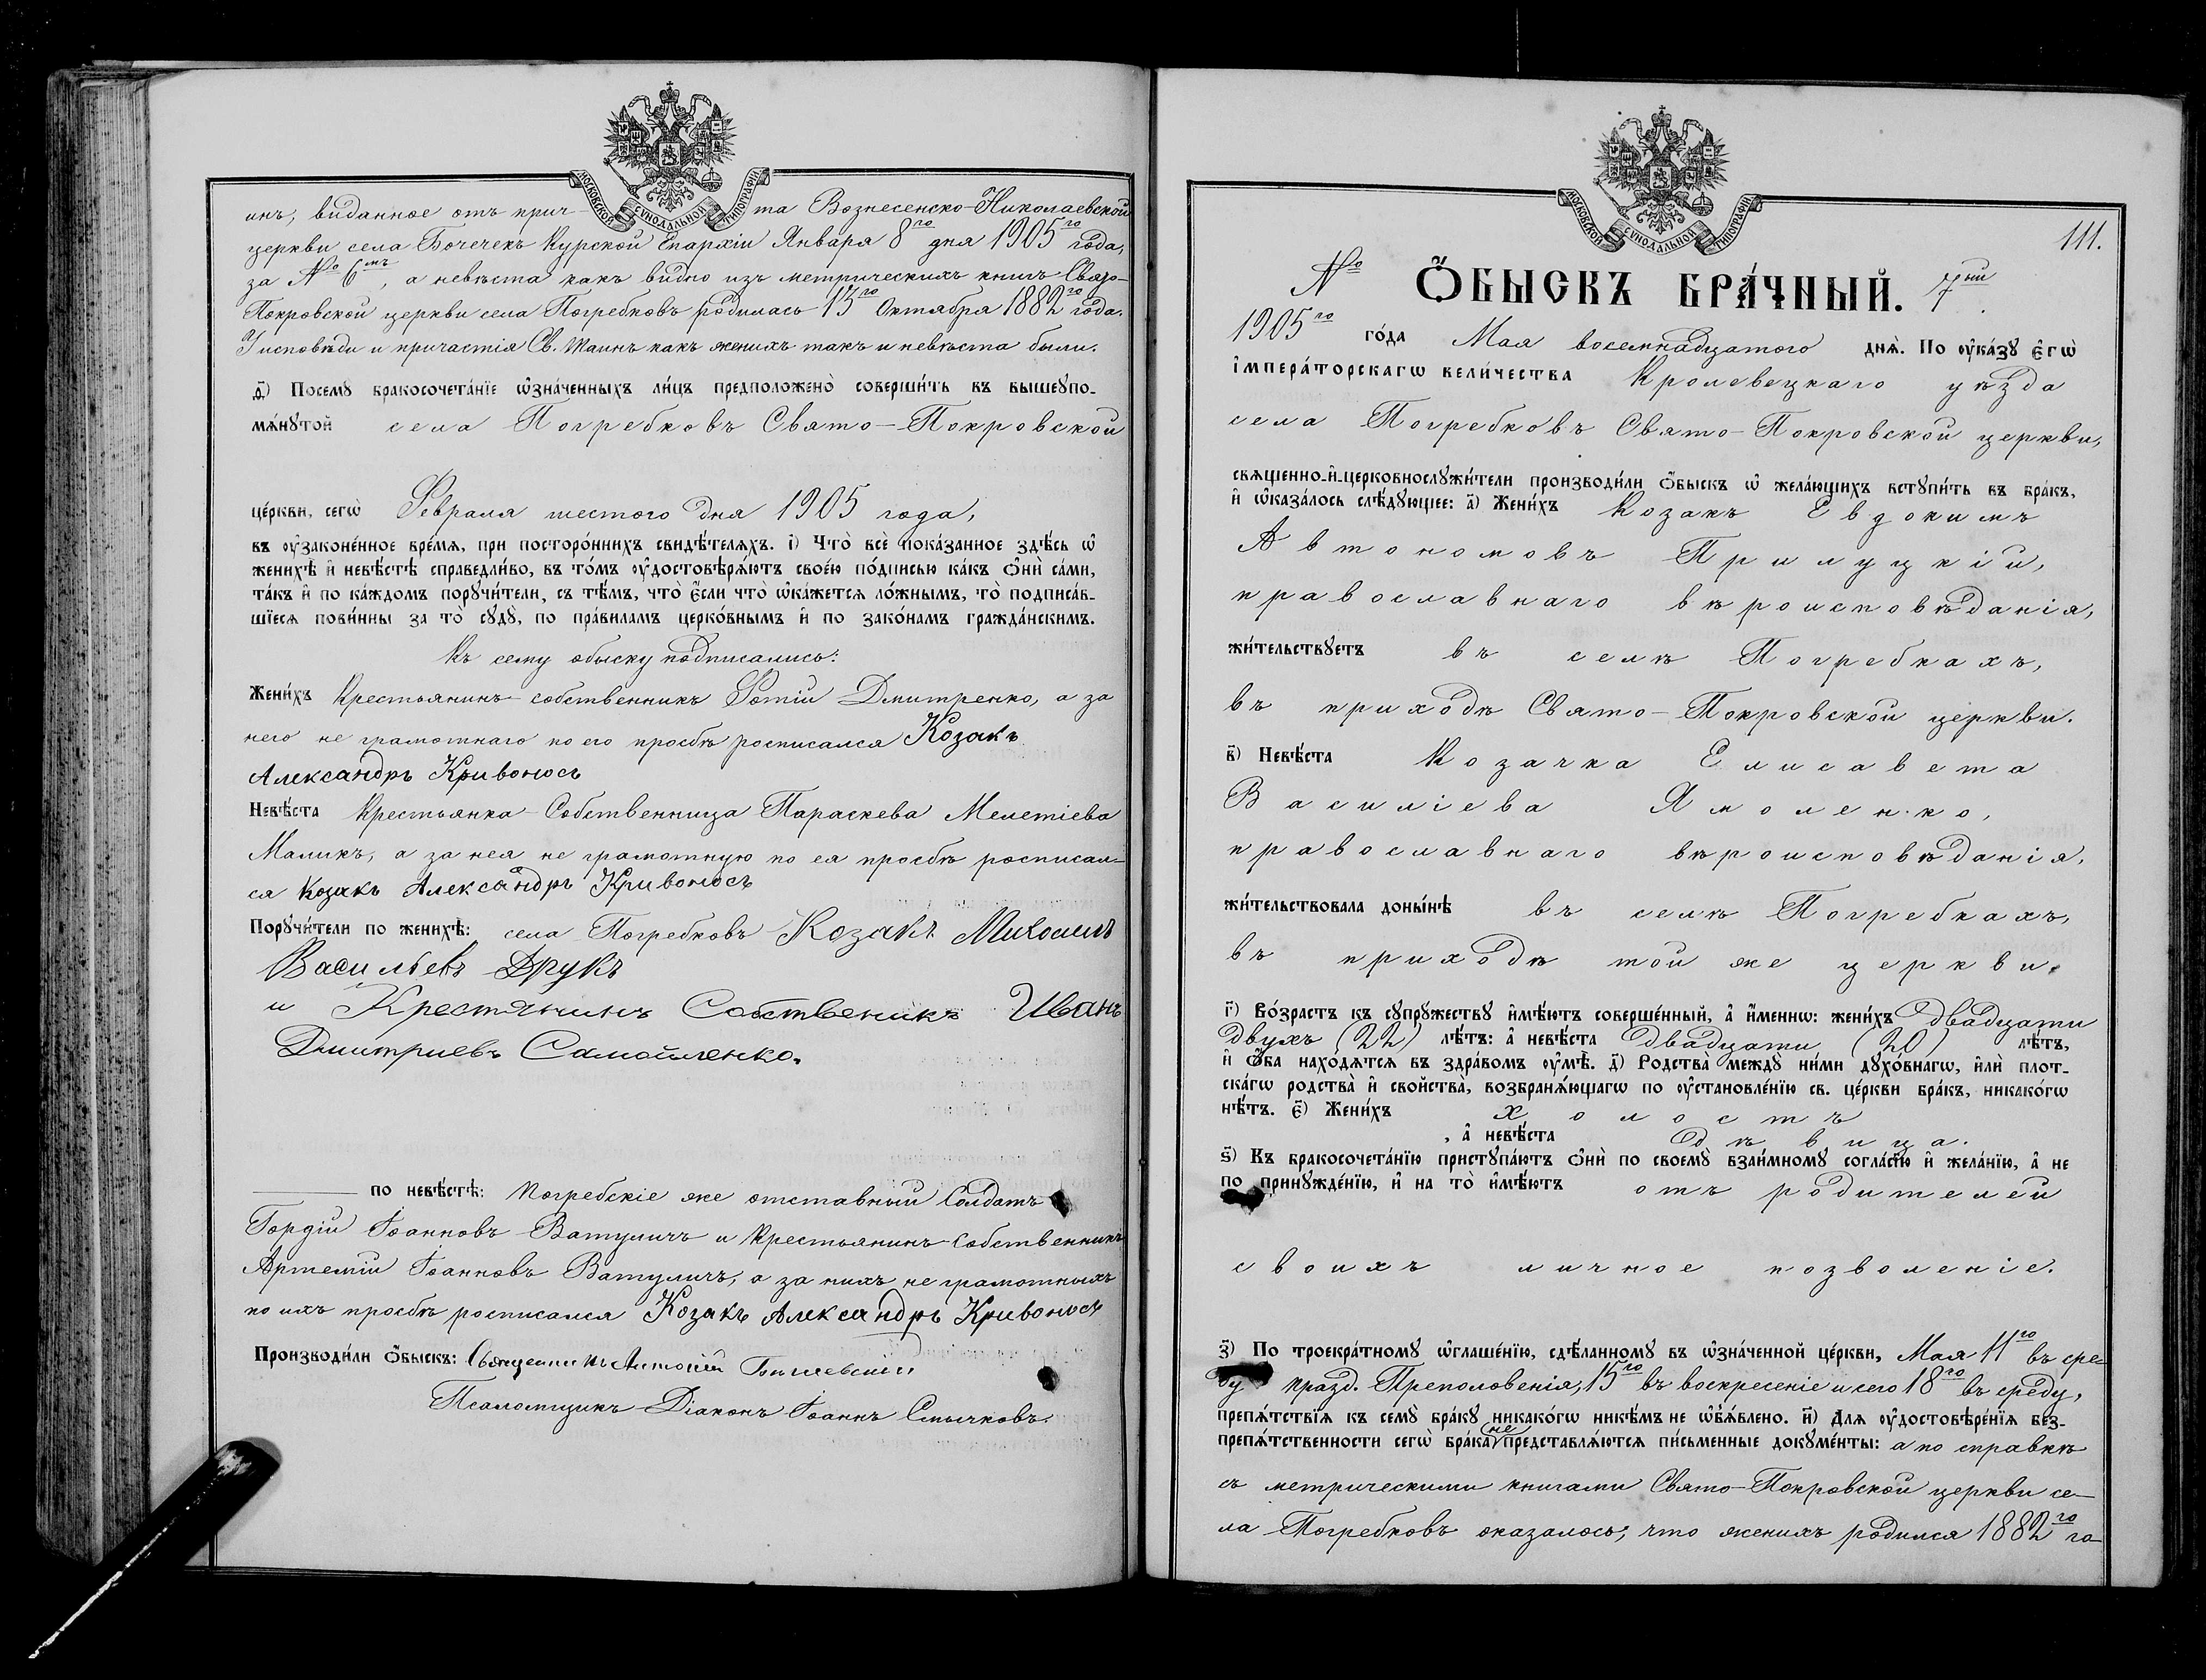 МОСКОВСКОЙ СУНОДАЛЬНОЙ ТИПОГРАФІИ
инъ, виданное отъ прич-та Вознесенско-Николаевской
церкви села Бочечекъ Курской Епархіи Января 8го дня 1905го года,
за № 6мъ, а невѣста какъ видно изъ метрическихъ книгъ Свято-
Покровской церкви села Погребковъ родилась 13го Октября 1882го года.
У исповѣди и причастія Св. Таинъ какъ женихъ такъ и невѣста были.
д҃) Посемꙋ бракосочета́нїе ѡ҆зна́ченныхъ ли́цъ предположено̀ соверши́ть въ вышеꙋпо-
мѧ́нꙋтой села Погребковъ Свято-Покровской
це́ркви, сегѡ̀ Февраля шестого дня 1905 года,
въ ᲂу҆законе́нное вре́мѧ, при посторо́ннихъ свидѣ́телѧхъ. і҃) Что̀ всѐ пока́занное здѣ́сь ѡ҆
женихѣ̀ и҆ невѣ́стѣ справедли́во, въ то́мъ ᲂу҆достовѣрѧ́ютъ свое́ю по́дписью ка́къ ѻ҆нѝ са́ми,
та́къ и҆ по ка́ждомъ порꙋчи́тели, съ тѣ́мъ, что̀ є҆́сли что̀ ѡ҆ка́жетсѧ ло́жнымъ, то̀ подписа́в-
шїесѧ пови́нны за то̀ сꙋдꙋ̀, по пра́виламъ церко́внымъ и҆ по зако́намъ гражда́нскимъ.
Къ сему обыску подписались:
Жени́хъ Крестьянинъ-собственникъ Фотій Дмитренко, а за
него не грамотнаго по его просбѣ росписался Козакъ
Александръ Кривоносъ
Невѣ́ста Крестьянка-Собственница Параскева Мелетіева
Маликъ, а за нея не грамотную по ея просбѣ росписал-
ся Козакъ Александръ Кривоносъ
Порꙋчи́тели по женихѣ̀: села Погребковъ Козакъ
Васильевъ Друкъ
и Крестянинъ Собственикъ Иванъ
Дмитриевъ Самойленко.
по невѣ́стѣ: Погребскіе же отставный Солдатъ
Гордій Іоанновъ Ватуличъ и Крестьянинъ-Собственникъ
Артемій Іоанновъ Ватуличъ, а за нихъ не грамотныхъ
по ихъ просбѣ росписался Козакъ Александръ Кривоносъ
Производи́ли ѻ҆́быскъ: Священникъ Антоній
Псаломщикъ-Діаконъ Іоаннъ Смычковъ.
МОСКОВСКОЙ СУНОДАЛЬНОЙ ТИПОГРАФІИ
111.
№ Ѻ҆́БЫСКЪ БРА́ЧНЫЙ. 7ый
1905го го́да Мая восемнадцатого днѧ̀. По ᲂу҆ка́зꙋ є҆гѡ̀
і҆мпера́торскагѡ вели́чества Кролевецкаго уѣзда
села Погребковъ Свято-Покровской церкви,
свѧщенно-и҆-церковнослꙋжи́тели производи́ли ѻ҆́быскъ ѡ҆ жела́ющихъ встꙋпи́ть въ бра́къ,
и҆ ѡ҆каза́лось слѣ́дꙋющее: а҃) Жени́хъ Козакъ Евдокимъ
Автономовъ Прилуцкій,
православнаго вѣроисповѣданія,
жи́тельствꙋетъ въ селѣ Погребкахъ,
въ приходѣ Свято-Покровской церкви.
в҃) Невѣ́ста Козачка Елисавета
Василіева Ямоленко,
православнаго вѣроисповѣданія,
жи́тельствовала доны́нѣ въ селѣ Погребкахъ,
въ приходѣ той же церкви.
г҃) Во́зрастъ къ сꙋпрꙋ́жествꙋ и҆мѣ́ютъ соверше́нный, а҆ и҆́меннѡ: жени́хъ двадцати
двухъ (22) лѣ́тъ: а҆ невѣ́ста двадцати (20) лѣ́тъ,
и҆ ѻ҆́ба нахо́дѧтсѧ въ здра́вомъ ᲂу҆мѣ̀. д҃) Родства̀ междꙋ̀ ни́ми дꙋхо́внагѡ, и҆лѝ плот-
ска́гѡ родства̀ и҆ свойства̀, возбранѧ́ющагѡ по ᲂу҆становле́нїю св. це́ркви бра́къ, никако́гѡ
нѣ́тъ. є҃) Жени́хъ холостъ
, а҆ невѣ́ста дѣвица.
ѕ҃) Къ бракосочета́нїю пристꙋпа́ютъ ѻ҆нѝ по своемꙋ̀ взаи́мномꙋ согла́сїю и҆ жела́нїю, а҆ не
по принꙋжде́нїю, и҆ на то̀ и҆мѣ́ютъ отъ родителей
своихъ личное позволеніе.
з҃) По троекра́тномꙋ ѡ҆глаше́нїю, сдѣ́ланномꙋ въ ѡ҆зна́ченной це́ркви, Мая 11го въ сре-
ду празд. Преполовенія, 15го въ воскресеніе и сего 18го въ среду,
препѧ́тствїѧ къ семꙋ̀ бра́кꙋ никако́гѡ никѣ́мъ не ѡ҆б̾ѧ́влено. и҃) Длѧ ᲂу҆достовѣре́нїѧ без-
препѧ́тственности сегѡ̀ бра́ка не представлѧ́ютсѧ пи́сьменные докꙋме́нты: а по справкѣ
съ метрическими книгами Свято-Покровской церкви се-
ла Погребковъ оказалось, что женихъ родился 1882го го-